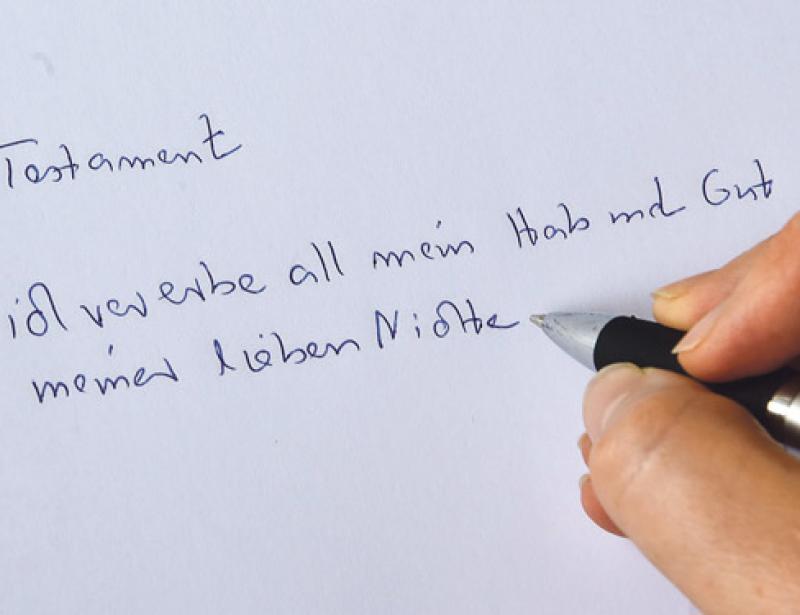 Testament
ich vererbe all mein Hab und Gut
meiner lieben Nichte